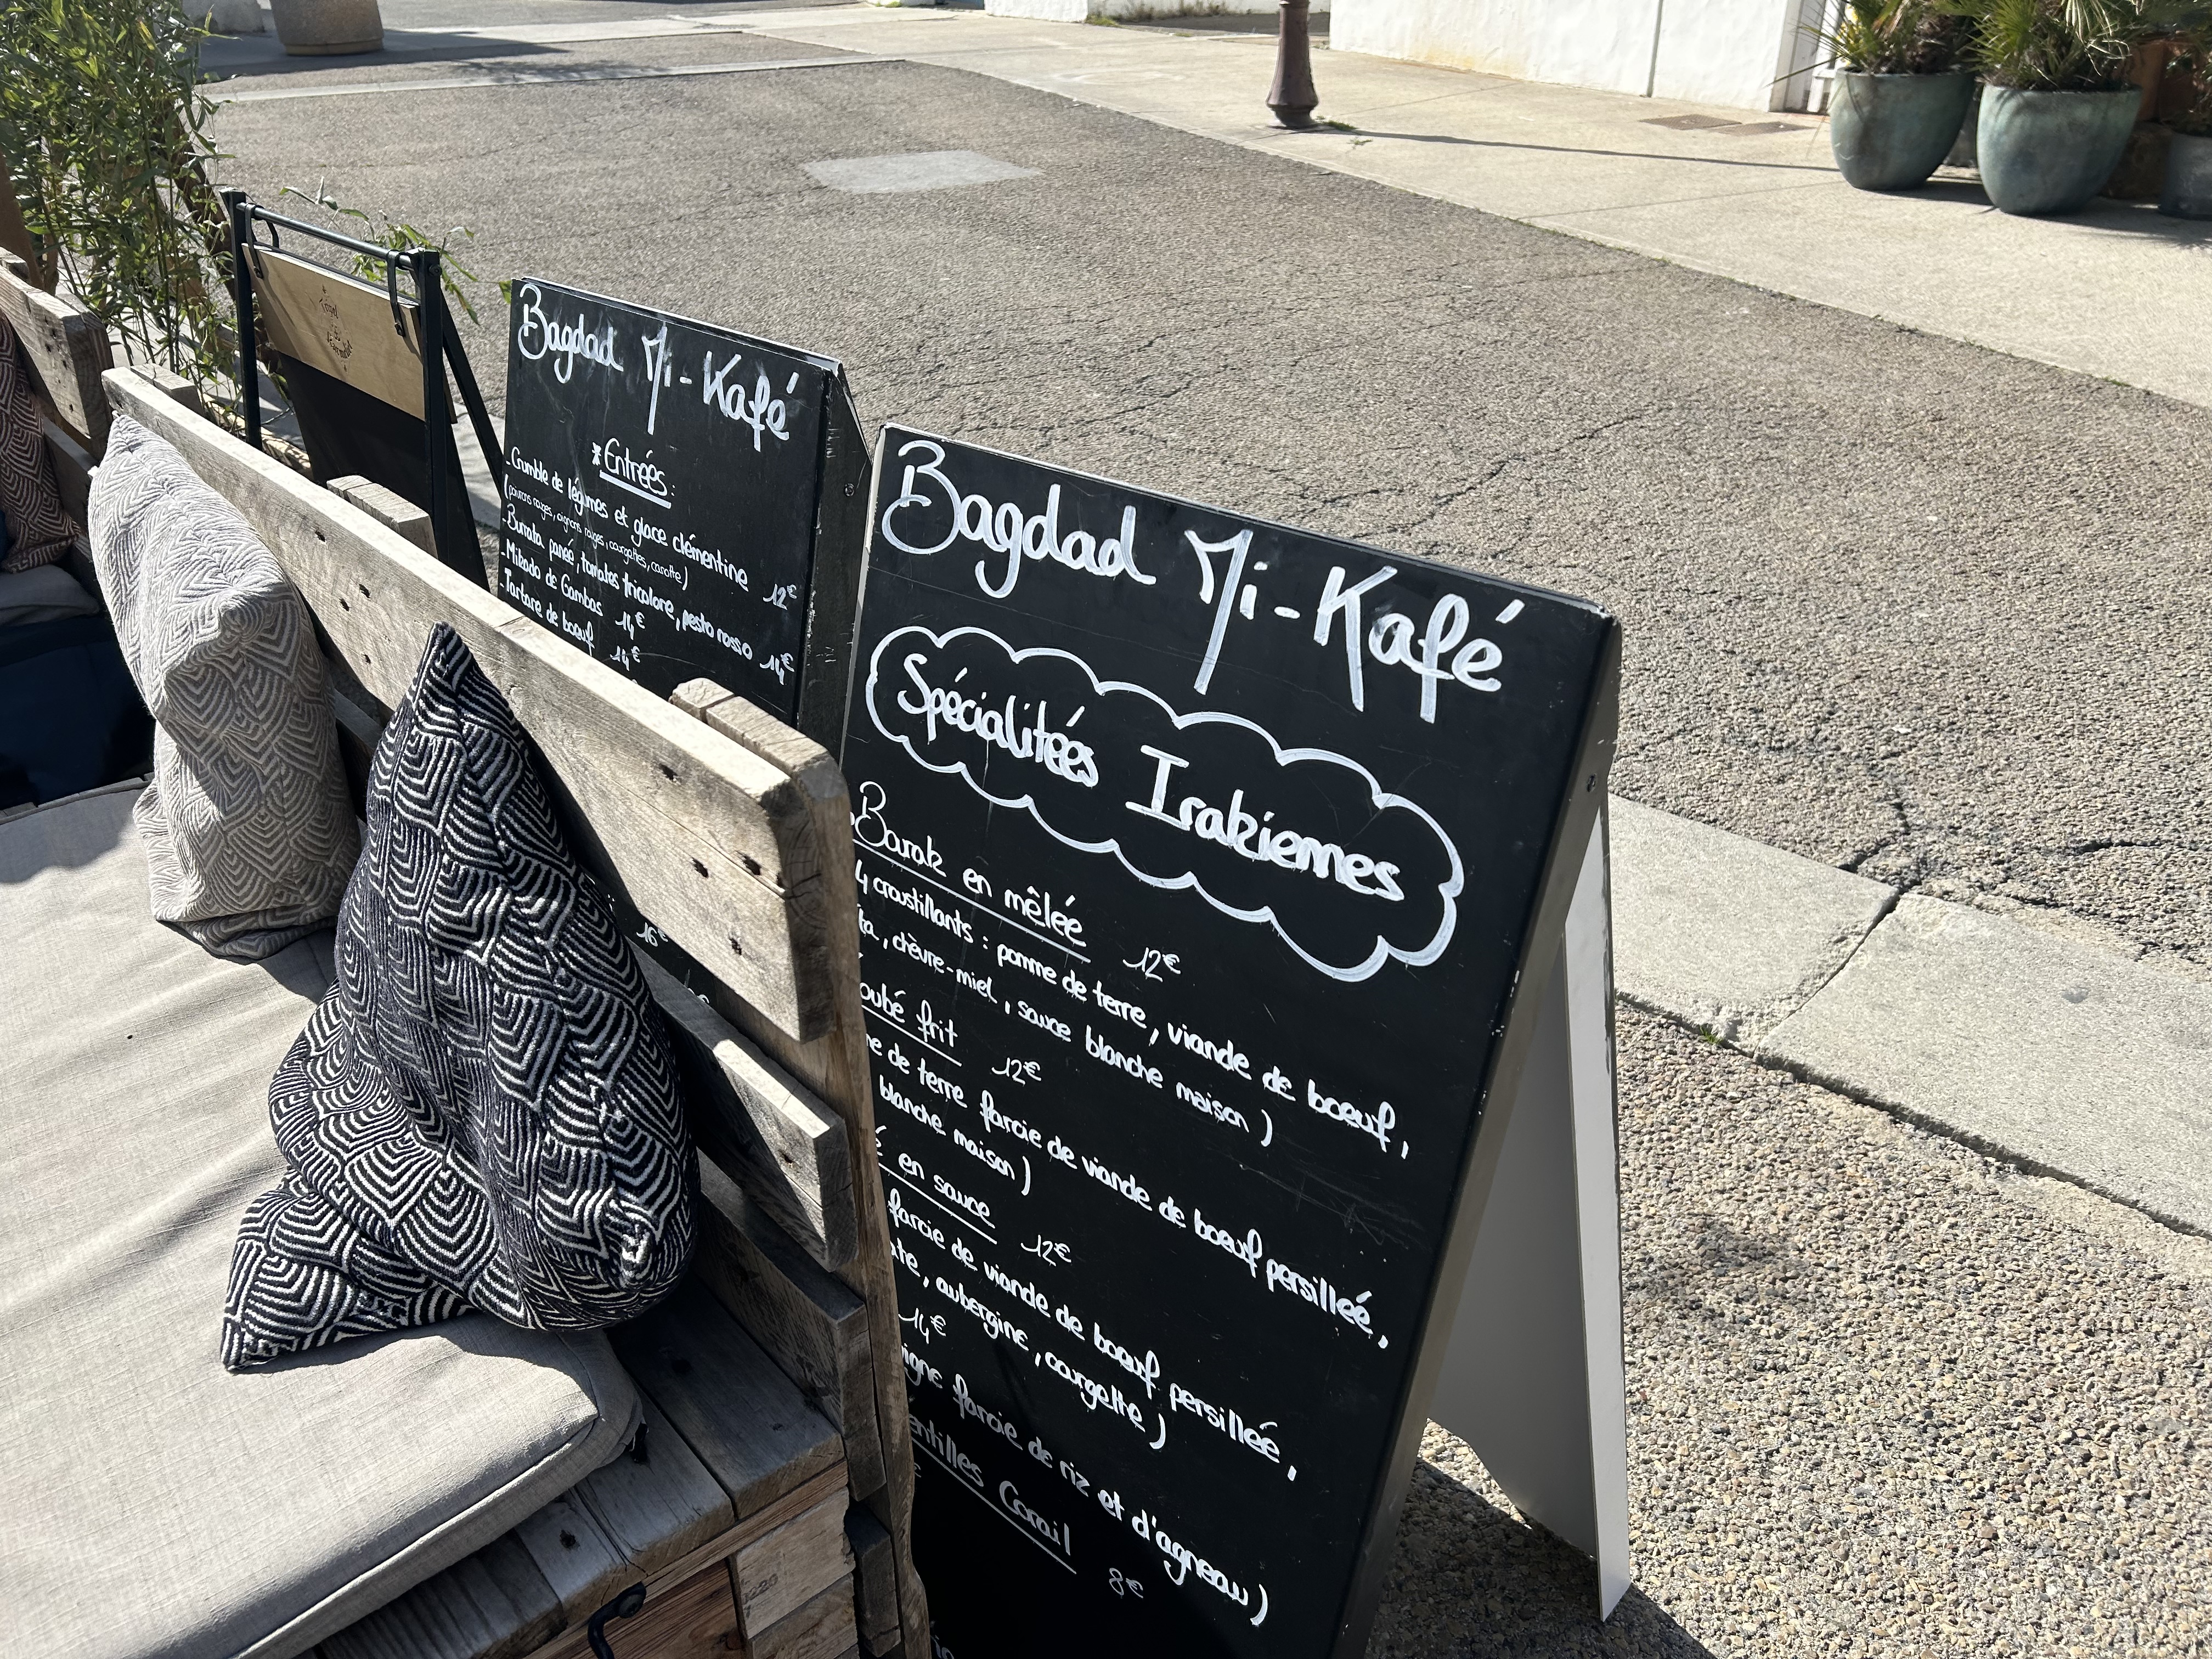 Bagdad Mi-Kafé
*Entrées:
- Crumble de légumes et glace clémentine 12€
(poivrons rouges, oignons rouges, courgettes, carotte)
- Burrata panée, tomates tricolore, pesto rosso 14€
- Mikado de Gambas 14€
- Tartare de boeuf 14€
16€
Bagdad Mi-Kafé
Spécialitées Irakiennes
Barak en mêlée 12€
4 croustillants : pomme de terre, viande de boeuf,
chèvre-miel, sauce blanche maison)
frit 12€
de terre farcie de viande de boeuf persilleé,
blanche maison)
en sauce 12€
farcie de viande de boeuf persilleé,
aubergine, courgette)
14€
farcie de riz et d'agneau)
Corail 8€